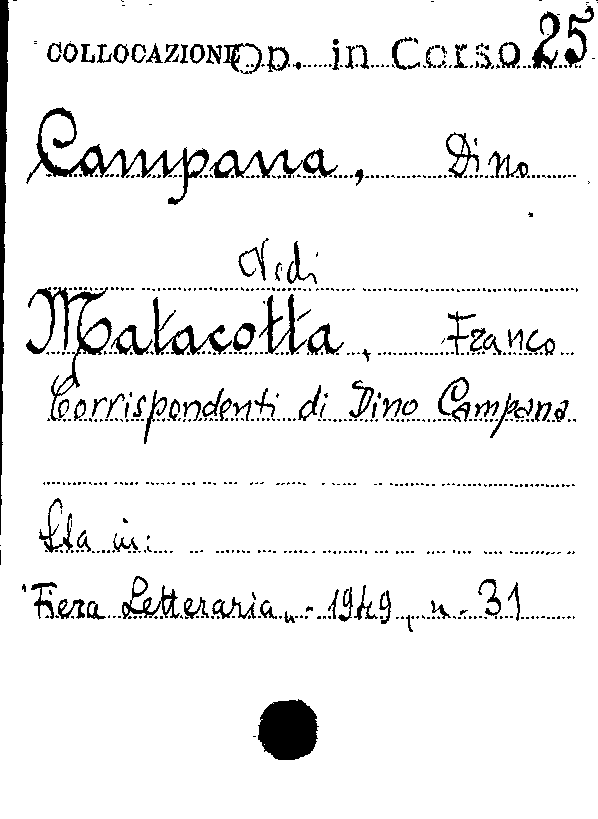 COLLOCAZIONE Op. in Corso 25
Campana, Dino
Vedi
Matacotta, Franco
Corrispondenti di Dino Campana
Sta in:
"Fiera Letteraria„ - 1949, n. 31